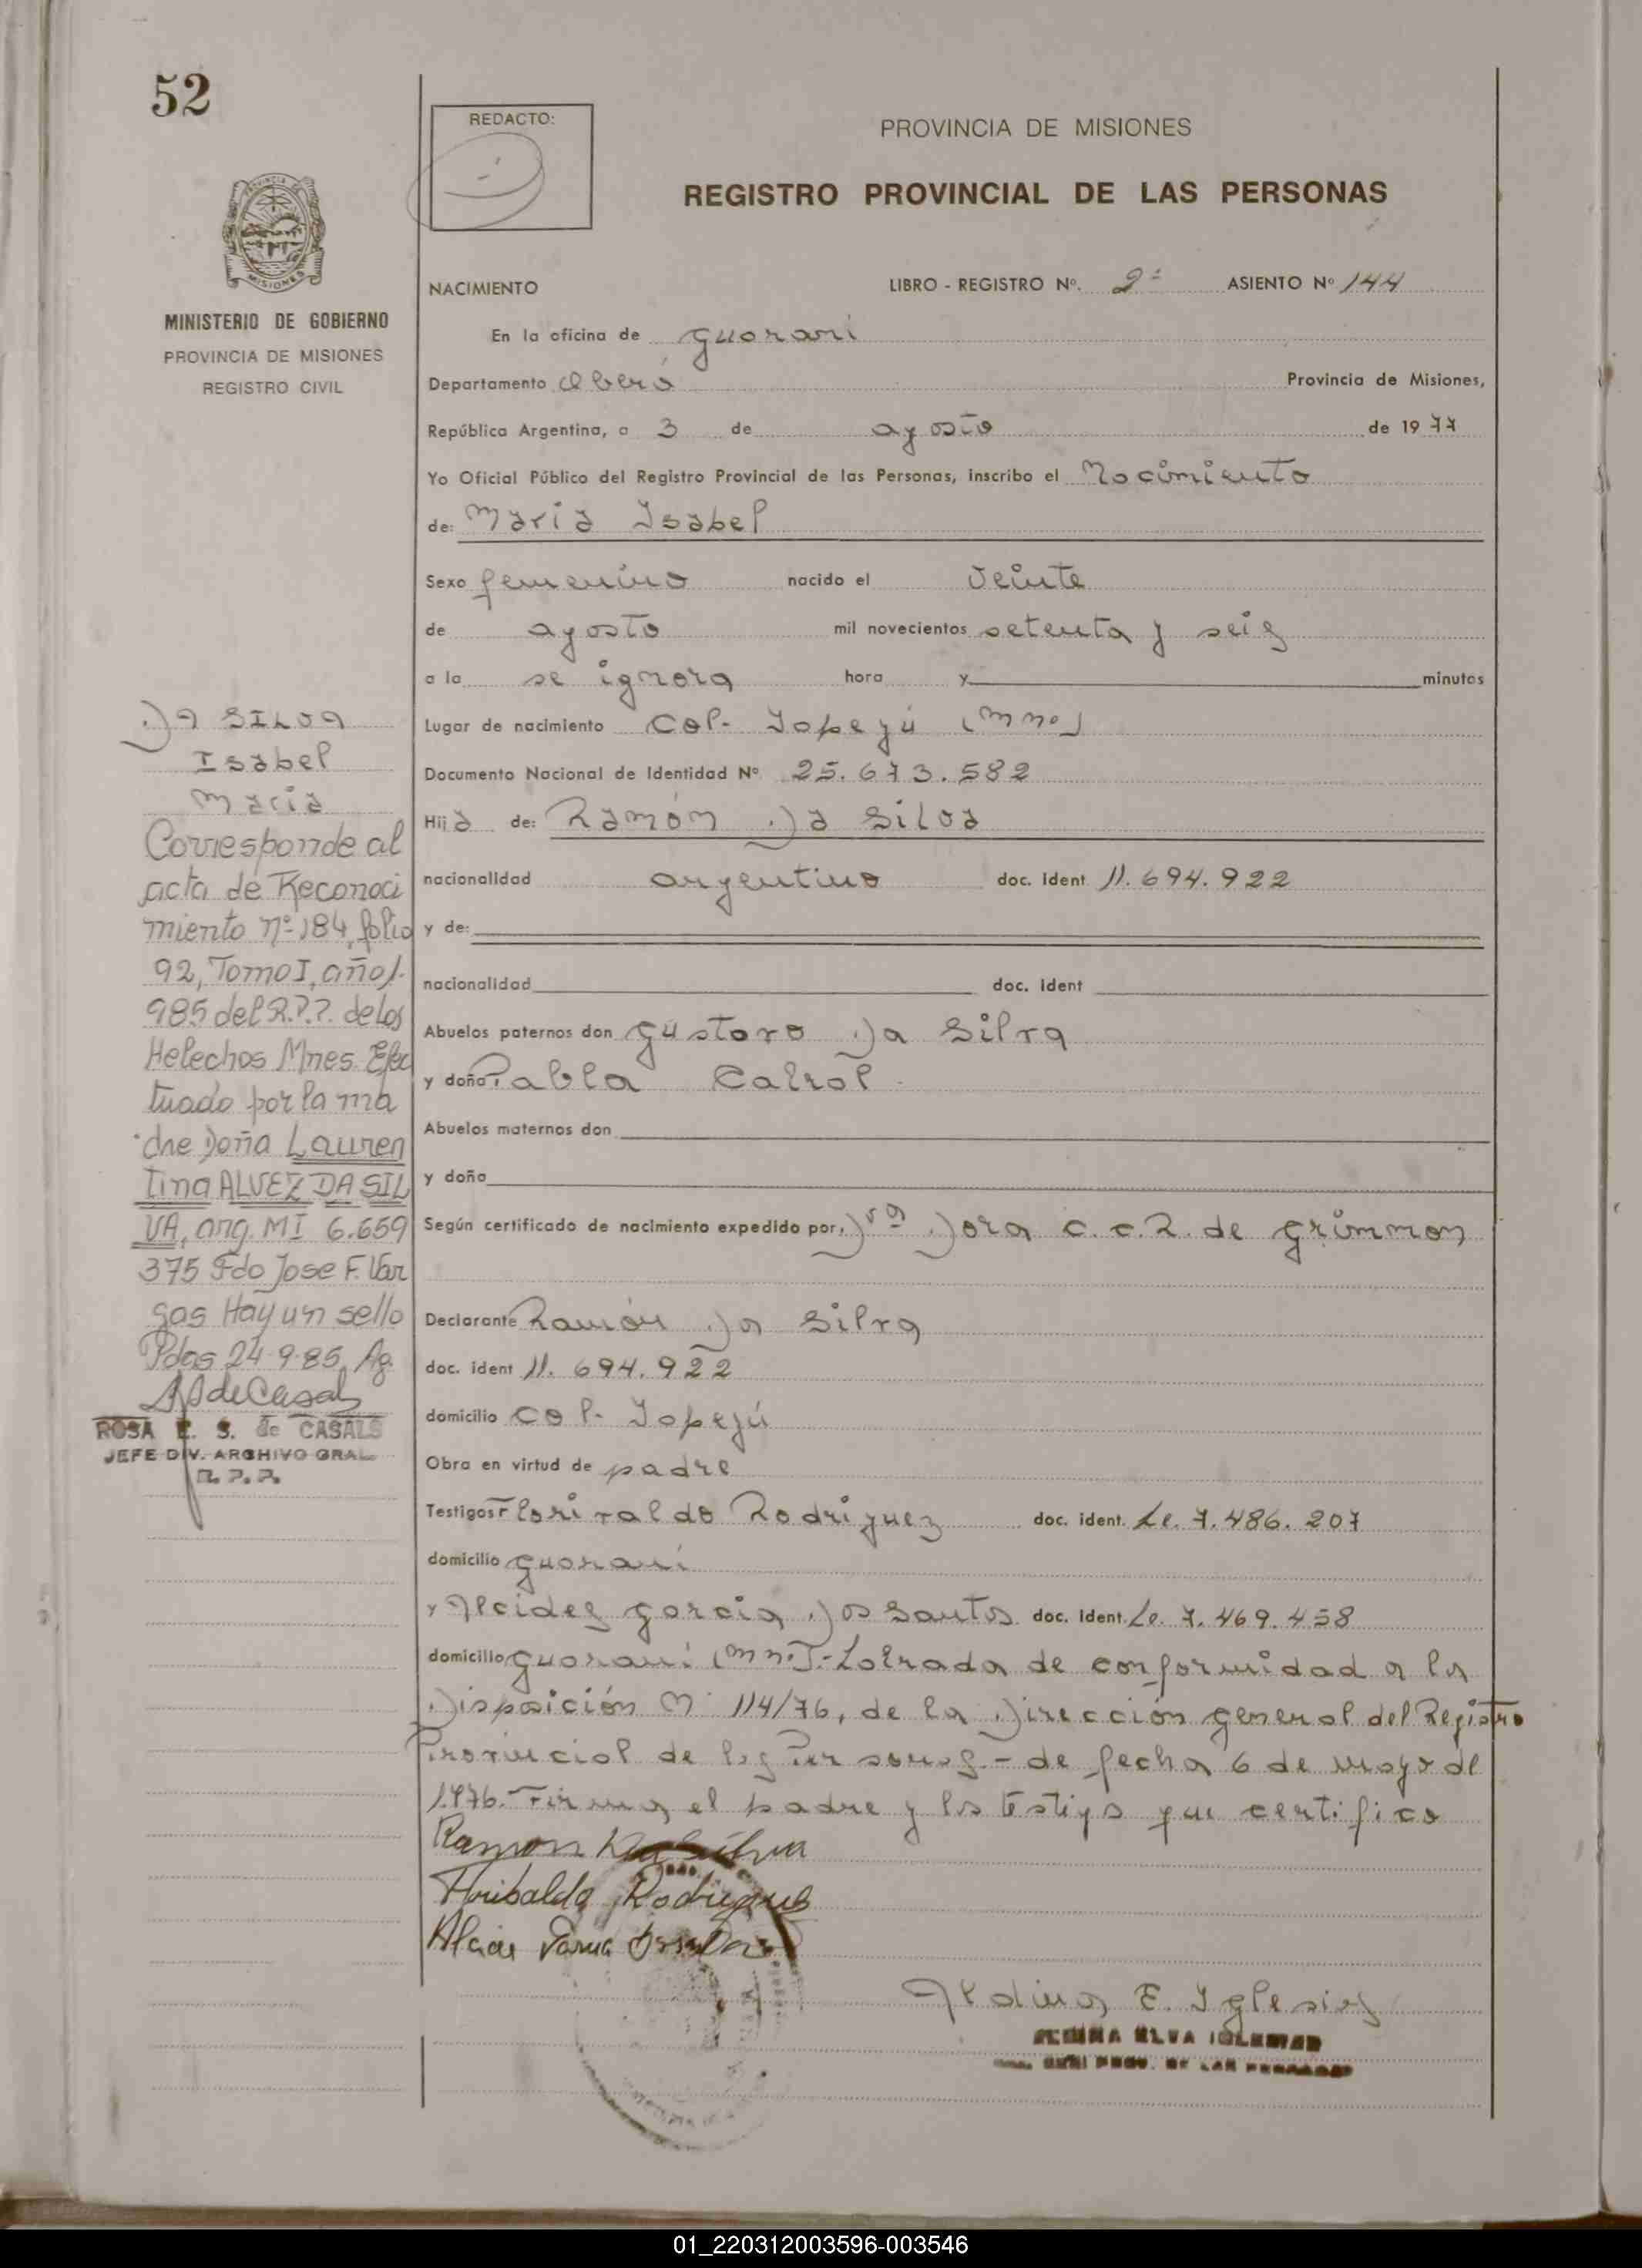 52
REDACTO:
PROVINCIA DE MISIONES
REGISTRO PROVINCIAL DE LAS PERSONAS
PROVINCIA DE
MISIONES
MINISTERIO DE GOBIERNO
PROVINCIA DE MISIONES
REGISTRO CIVIL
NACIMIENTO LIBRO - REGISTRO Nº. 2º ASIENTO Nº 144
En la oficina de Guarani
Departamento Oberá Provincia de Misiones,
República Argentina, a 3 de agosto de 1977
Yo Oficial Público del Registro Provincial de las Personas, inscribo el Nacimiento
de: Maria Isabel
Sexo femenino nacido el veinte
de agosto mil novecientos setenta y seis
a la se ignora hora y minutos
Lugar de nacimiento Col. Yapeyú (Mnes)
Documento Nacional de Identidad Nº 25.673.582
Hija de: Ramón Da Silva
nacionalidad argentino doc. ident 11.694.922
y de:
nacionalidad doc. ident
Abuelos paternos don Gustavo Da Silva
y doña Pabla Cabrol
Abuelos maternos don
y doña
Según certificado de nacimiento expedido por Dra Dora C. C. R. de Grimmon
Declarante Ramón Da Silva
doc. ident 11.694.922
domicilio Col. Yapeyú
Obra en virtud de padre
Testigos Florivaldo Rodriguez doc. ident. Le. 7.486.207
domicilio Guarani
y Alcides Garcia Dos Santos doc. Ident. Le. 7.469.458
domicilio Guarani (Mn.).- Labrada de conformidad a la
Disposición Nº 114/76, de la Dirección General del Registro
Provincial de las Personas.- de fecha 6 de mayo de
1.976.- Firman el padre y los testigos que certifico
Ramon Da Silva
Floribaldo Rodrigues
Aldina E. Iglesias
ALDINA ELVA IGLESIAS
DA SILVA
Isabel
Maria
Corresponde al
acta de Reconoci
miento nº 184, folio
92, Tomo I, año 1.
985 del R.P.P. de Los
Helechos Mnes. Efec
tuado por la ma
dre Doña Lauren
tina ALVEZ DA SIL
VA, arg. MI 6.659
375 Fdo Jose F. Var
gas Hay un sello
Pdas 24-9-85 Ag.
de Casals
ROSA E. S. de CASALS
JEFE DIV. ARCHIVO GRAL
R. P. P.
01_220312003596-003546